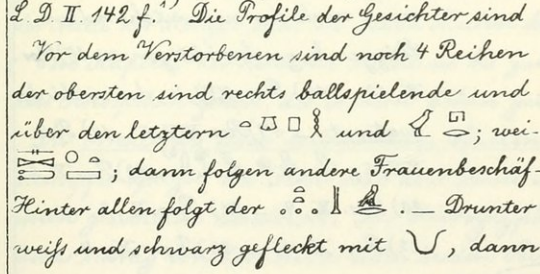 L. D. II. 142 f.¹⁾ Die Profile der Gesichter sind
Vor dem Verstorbenen sind noch 4 Reihen
der obersten sind rechts ballspielende und
über den letztern und ; wei-
; dann folgen andere Frauenbeschäf-
Hinter allen folgt der . — Drunter
weiſs und schwarz gefleckt mit , dann